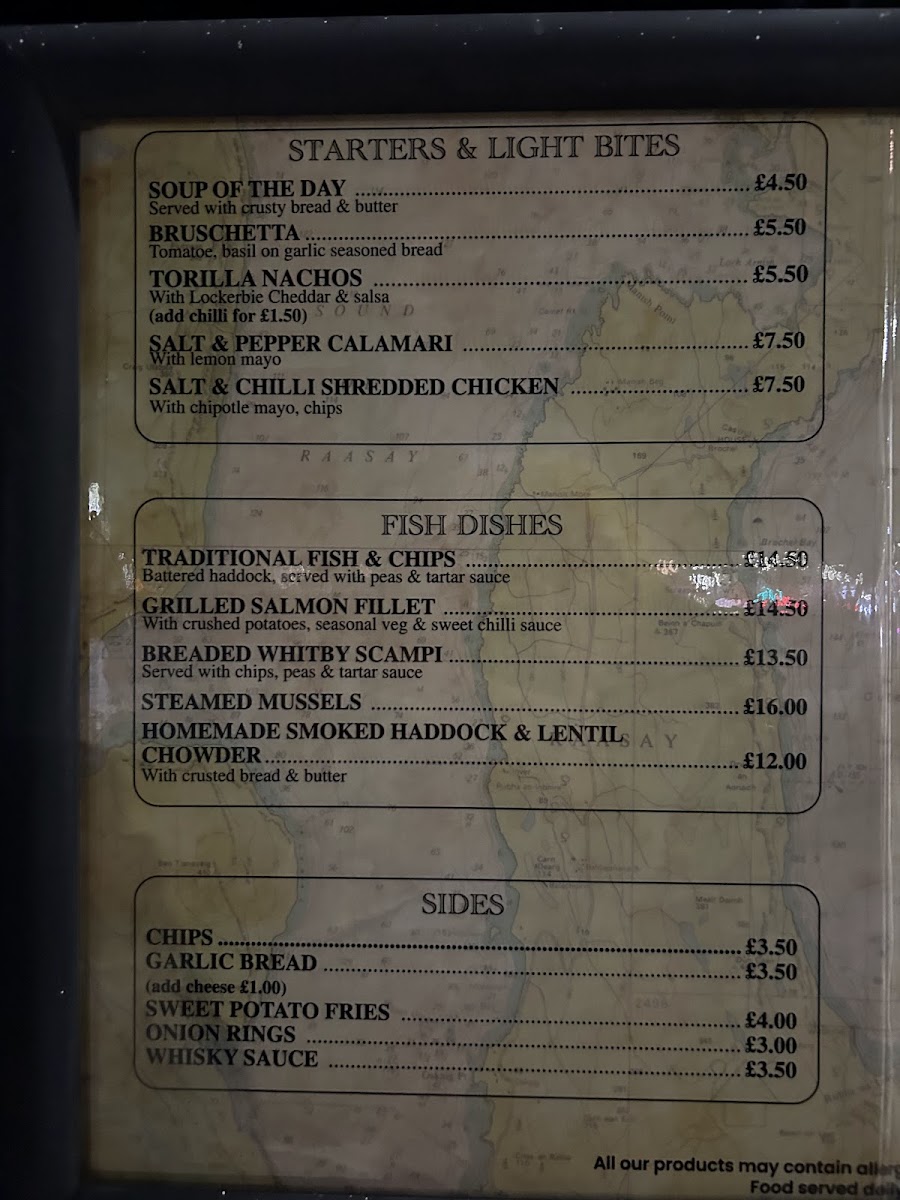 STARTERS & LIGHT BITES
SOUP OF THE DAY ........ £4.50
Served with crusty bread & butter
BRUSCHETTA ........ £5.50
Tomatoe, basil on garlic seasoned bread
TORILLA NACHOS ........ £5.50
With Lockerbie Cheddar & salsa
(add chilli for £1.50)
SOUND
SALT & PEPPER CALAMARI ........ £7.50
With lemon mayo
SALT & CHILLI SHREDDED CHICKEN ........ £7.50
With chipotle mayo, chips
RAASAY
FISH DISHES
TRADITIONAL FISH & CHIPS ........ £14.50
Battered haddock, served with peas & tartar sauce
GRILLED SALMON FILLET ........ £14.50
With crushed potatoes, seasonal veg & sweet chilli sauce
BREADED WHITBY SCAMPI ........ £13.50
Served with chips, peas & tartar sauce
STEAMED MUSSELS ........ £16.00
HOMEMADE SMOKED HADDOCK & LENTIL
CHOWDER ........ £12.00
With crusted bread & butter
SIDES
CHIPS ........ £3.50
GARLIC BREAD ........ £3.50
(add cheese £1.00)
SWEET POTATO FRIES ........ £4.00
ONION RINGS ........ £3.00
WHISKY SAUCE ........ £3.50
All our products may contain
Food served